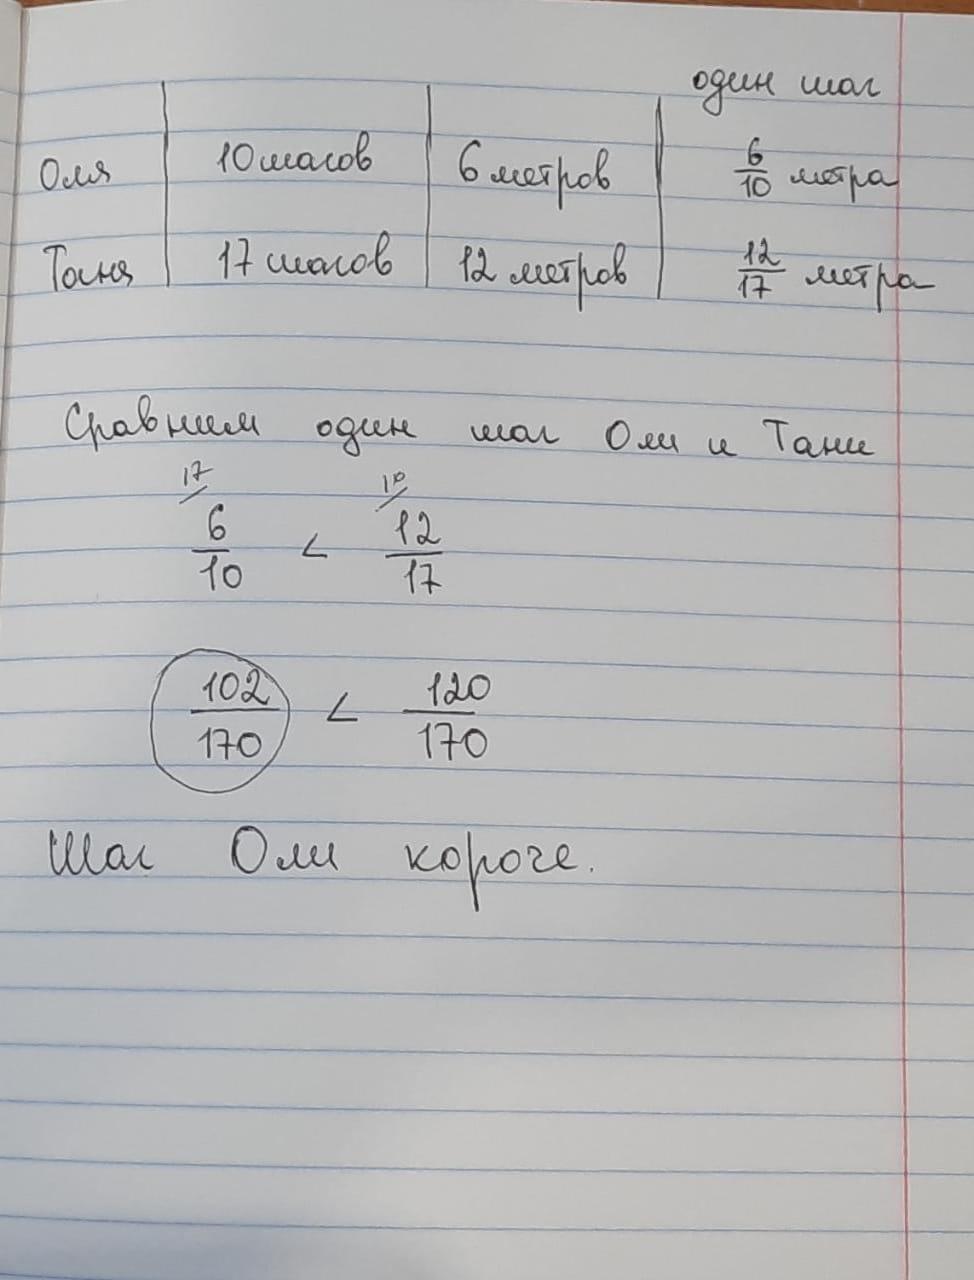 один шаг
Оля 10 шагов 6 метров 6/10 метра
Таня 17 шагов 12 метров 12/17 метра
Сравним один шаг Оли и Тани
17/ 10/
6/10 < 12/17
102/170 < 120/170
Шаг Оли короче.